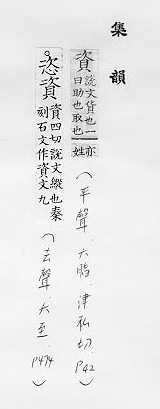 集韻
資 說文貨也一曰助也取也亦姓
(平聲.六脂.津私切.P42)
恣資 資四切說文縱也秦刻石文作資文九
(去聲.六至.P474)